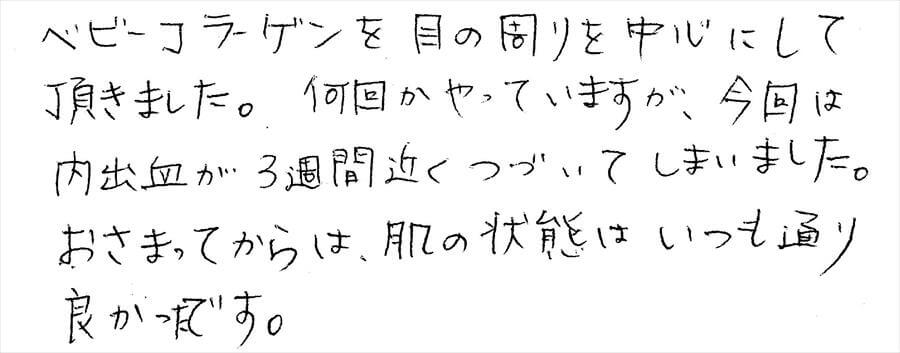 ベビーコラーゲンを目の周りを中心にして
頂きました。何回かやっていますが、今回は
内出血が3週間近くつづいてしまいました。
おさまってからは、肌の状態はいつも通り
良かったです。